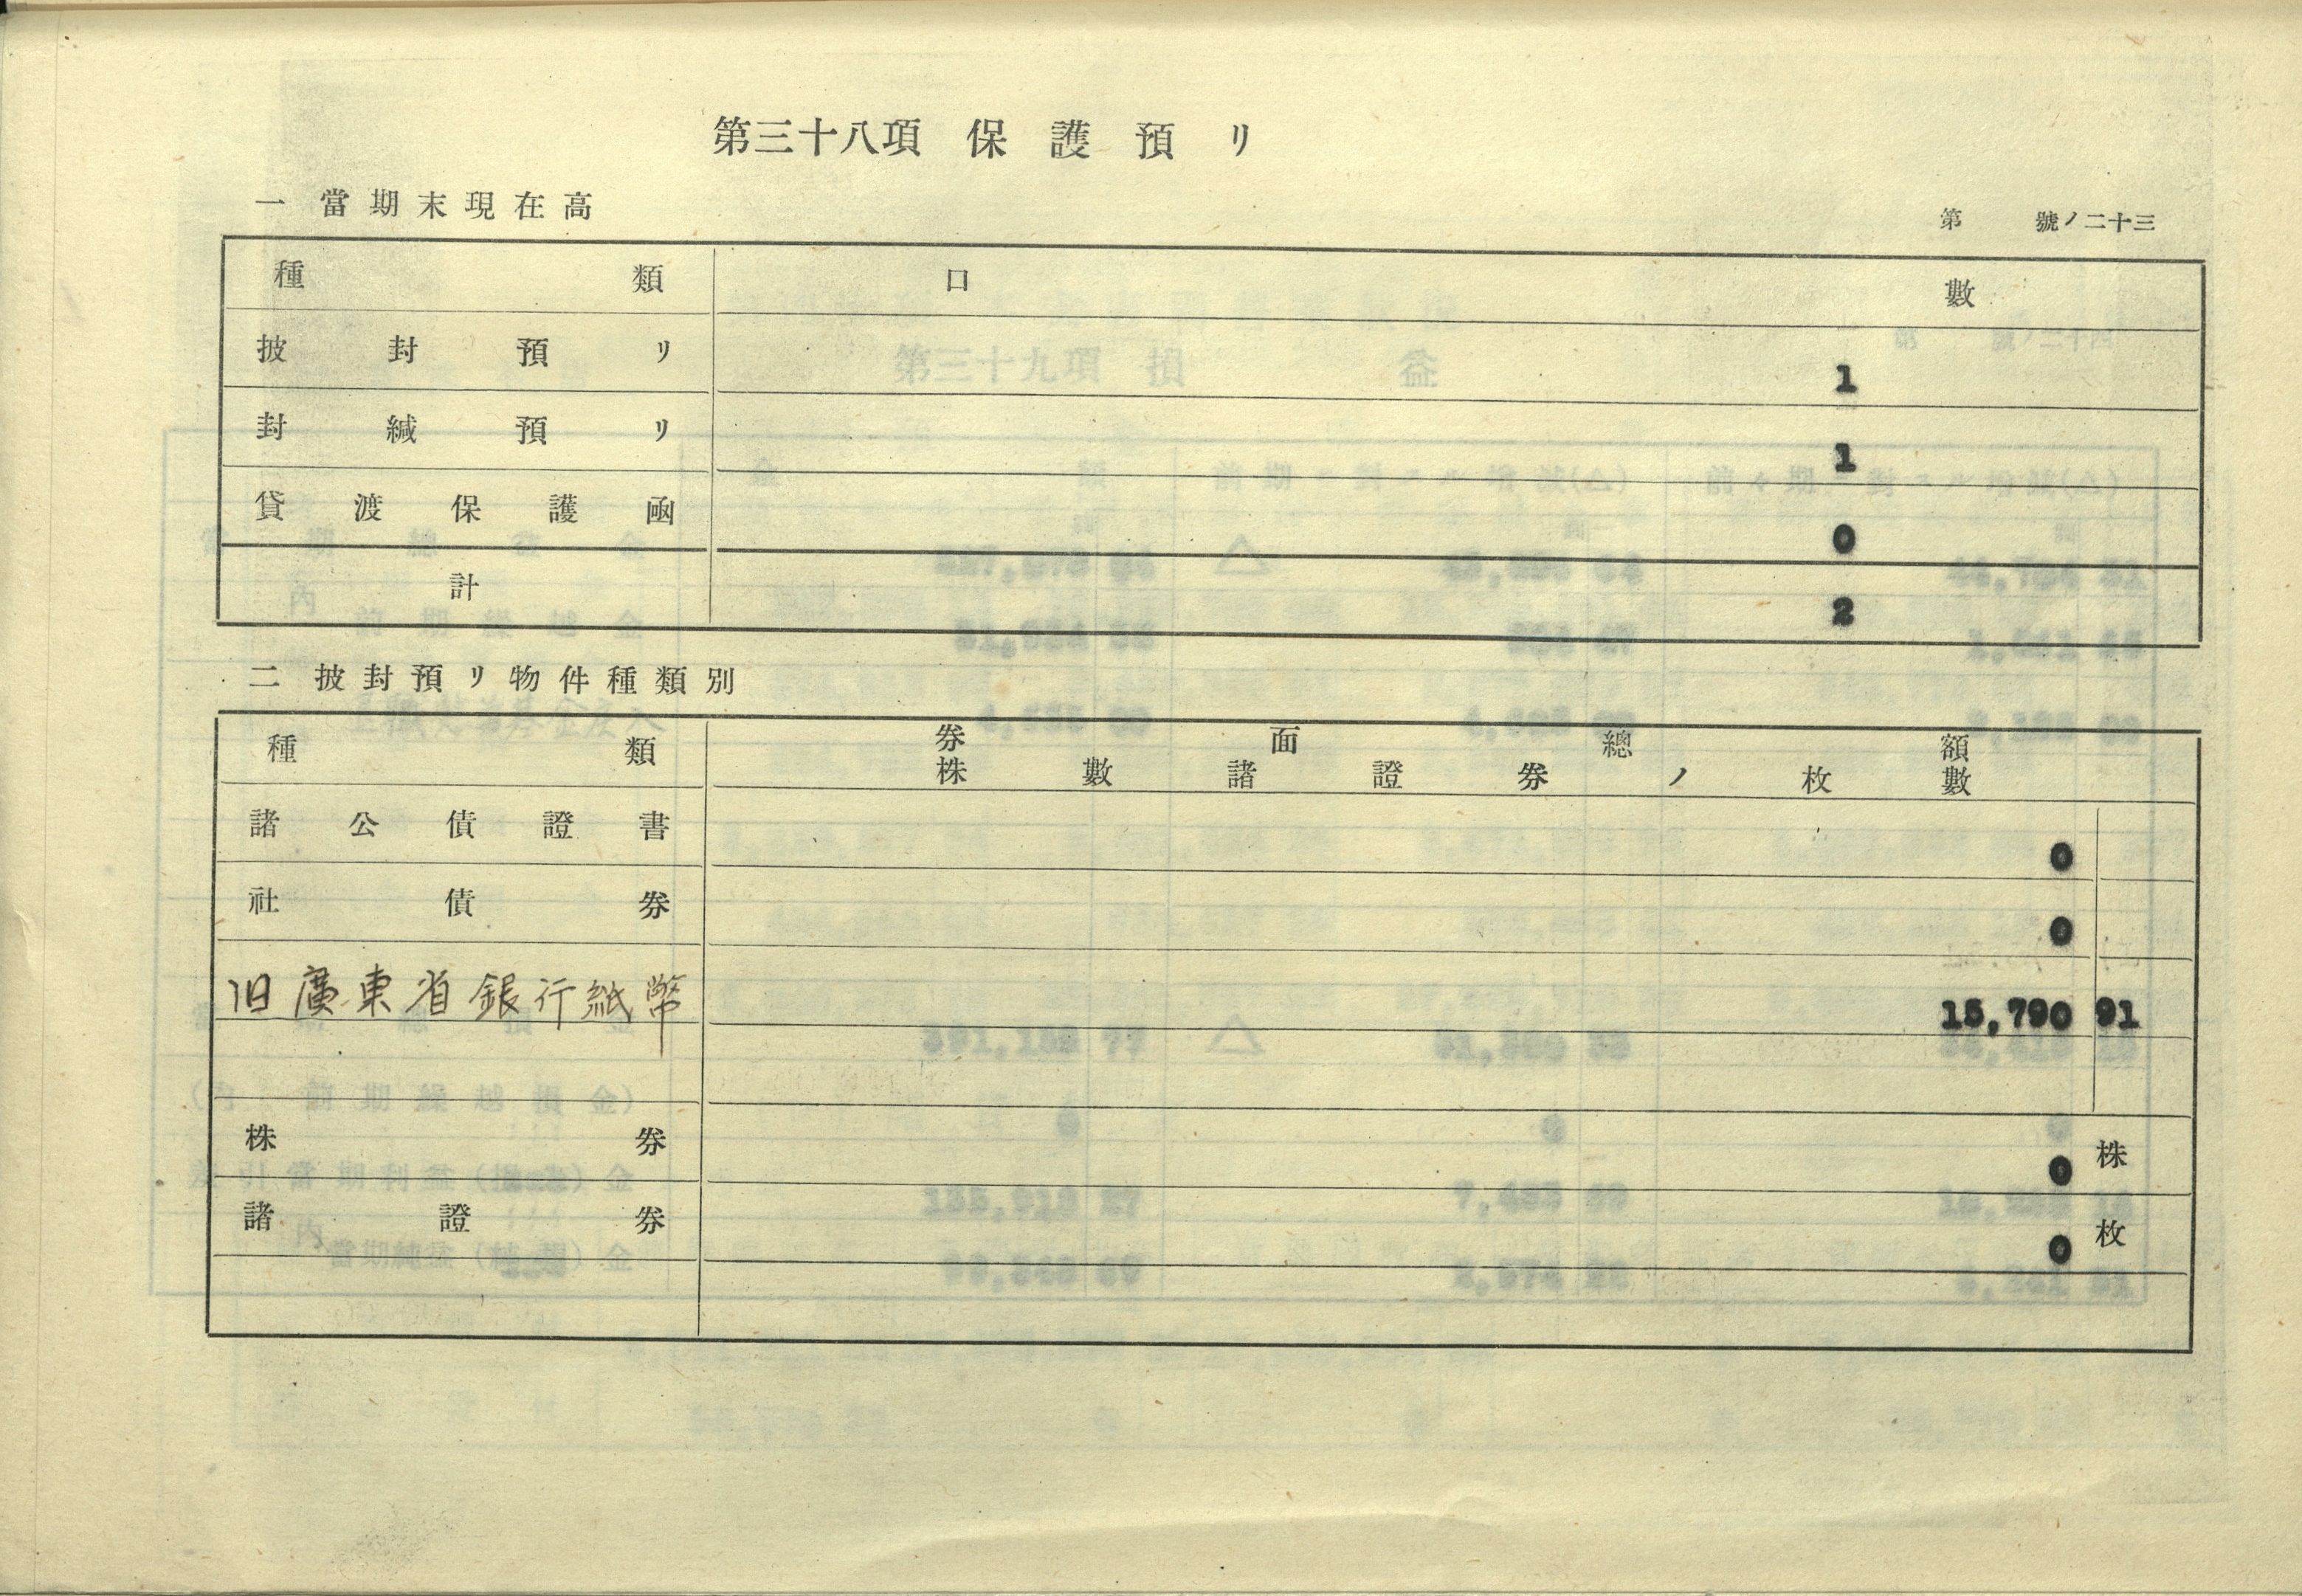 第三十八項 保護預リ
一 當期末現在高
第 號ノ二十三
種類 口數
披封預リ 1
封緘預リ 1
貸渡保護函 0
計 2
二 披封預リ物件種類別
種類 券面總額
株數諸證券ノ枚數
諸公債證書 0
社債券 0
旧廣東省銀行紙幣 15,790 91
株券 0 株
諸證券 0 枚